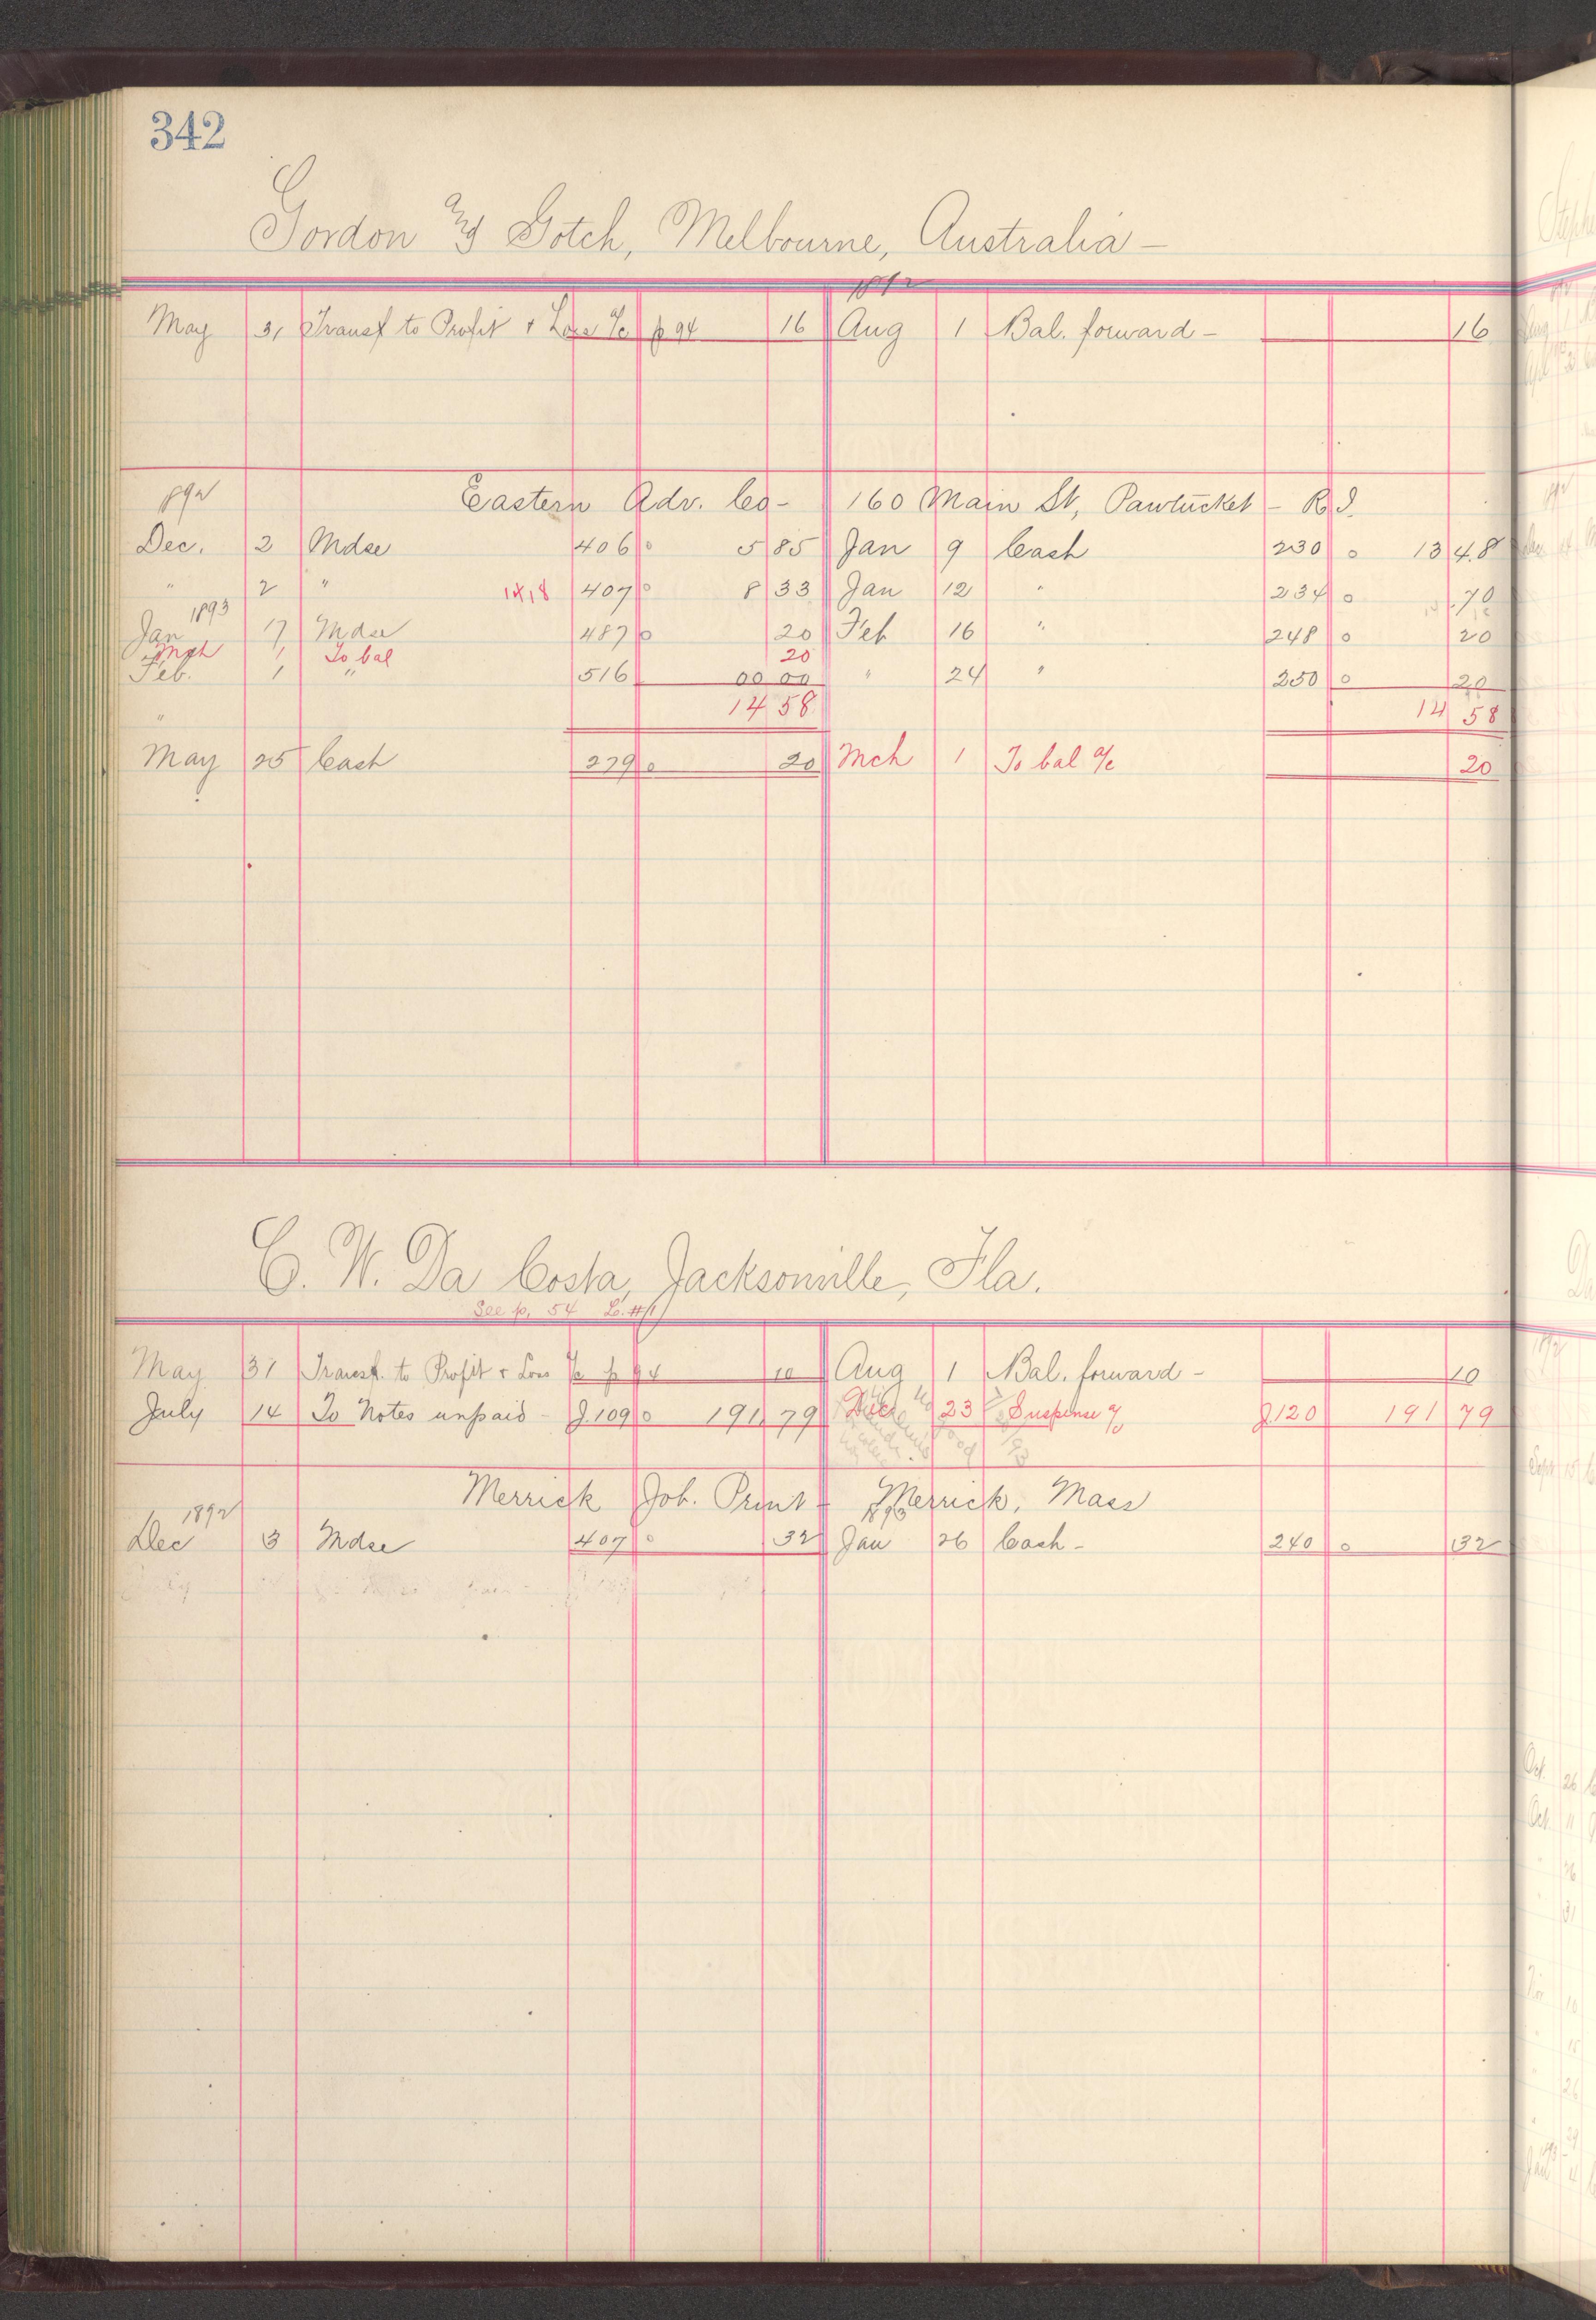 342
Gordon and Gotch, Melbourne, Australia -
1892
May 31 Transf to Profit & Loss a/c p 94 16 Aug 1 Bal. forward - 16
1892 Eastern Adv. Co - 160 Main St, Pawtucket - R.I.
Dec. 2 Mdse 406 0 5 85 Jan 9 Cash 230 0 13 48
" 2 " 14,18 407 0 8 33 Jan 12 " 234 0 70
1893
Jan 17 Mdse 487 0 20 Feb 16 " 248 0 20
Mch 1 To bal 20
Feb. 1 " 516 00 00 " 24 " 250 0 20
" 14 58 14 58
May 25 Cash 279 0 20 Mch 1 To bal a/c 20
C. W. Da Costa, Jacksonville, Fla.
See p. 54 L. #1
May 31 Transf. to Profit & Loss a/c p 94 10 Aug 1 Bal. forward - 10
July 14 To Notes unpaid - J. 109 0 191 79 Dec 23 Suspense a/c J. 120 191 79
Merrick Job. Print - Merrick, Mass
1892 1893
Dec 3 Mdse 407 0 32 Jan 26 Cash - 240 0 32